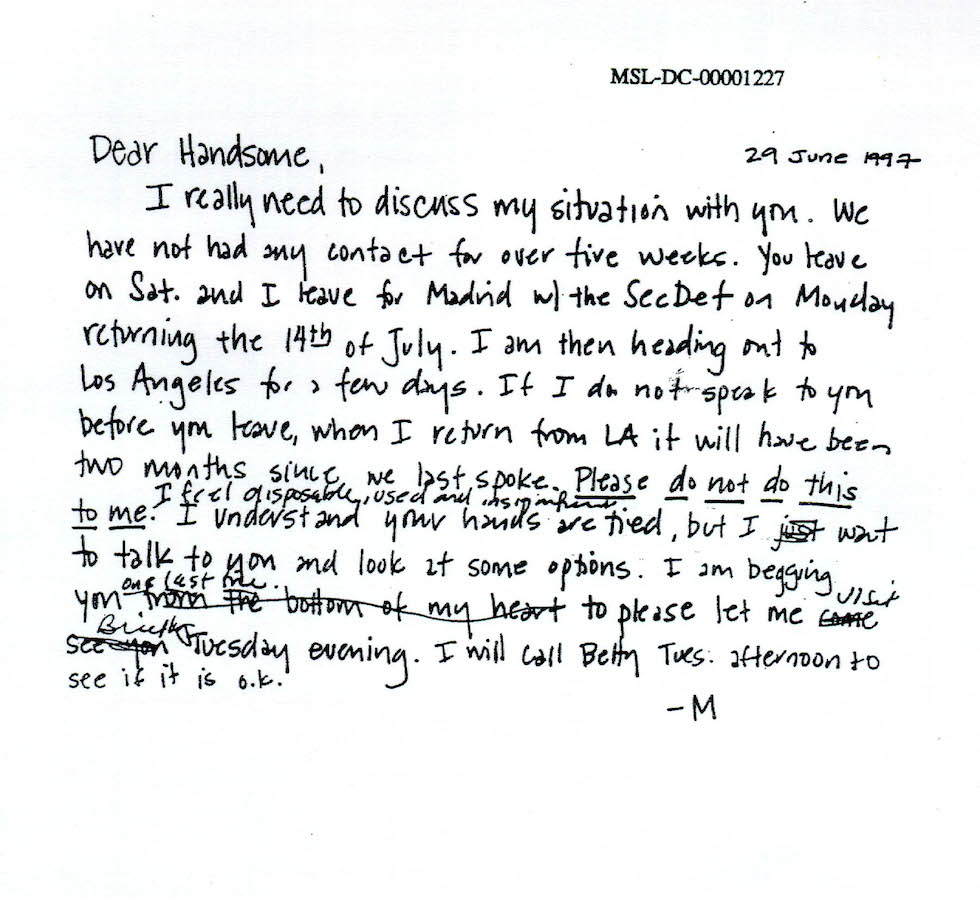 MSL-DC-00001227
Dear Handsome,
29 June 1997
I really need to discuss my situation with you. We
have not had any contact for over five weeks. You leave
on Sat. and I leave for Madrid w/ the SecDef on Monday
returning the 14th of July. I am then heading out to
Los Angeles for a few days. If I do not speak to you
before you leave, when I return from LA it will have been
two months since we last spoke. Please do not do this
I feel disposable, used and insignificant
to me. I understand your hands are tied, but I just want
to talk to you and look at some options. I am begging
one last time.
you from the bottom of my heart to please let me come
visit
Briefly
see you Tuesday evening. I will call Betty Tues. afternoon to
see if it is o.k.
-M